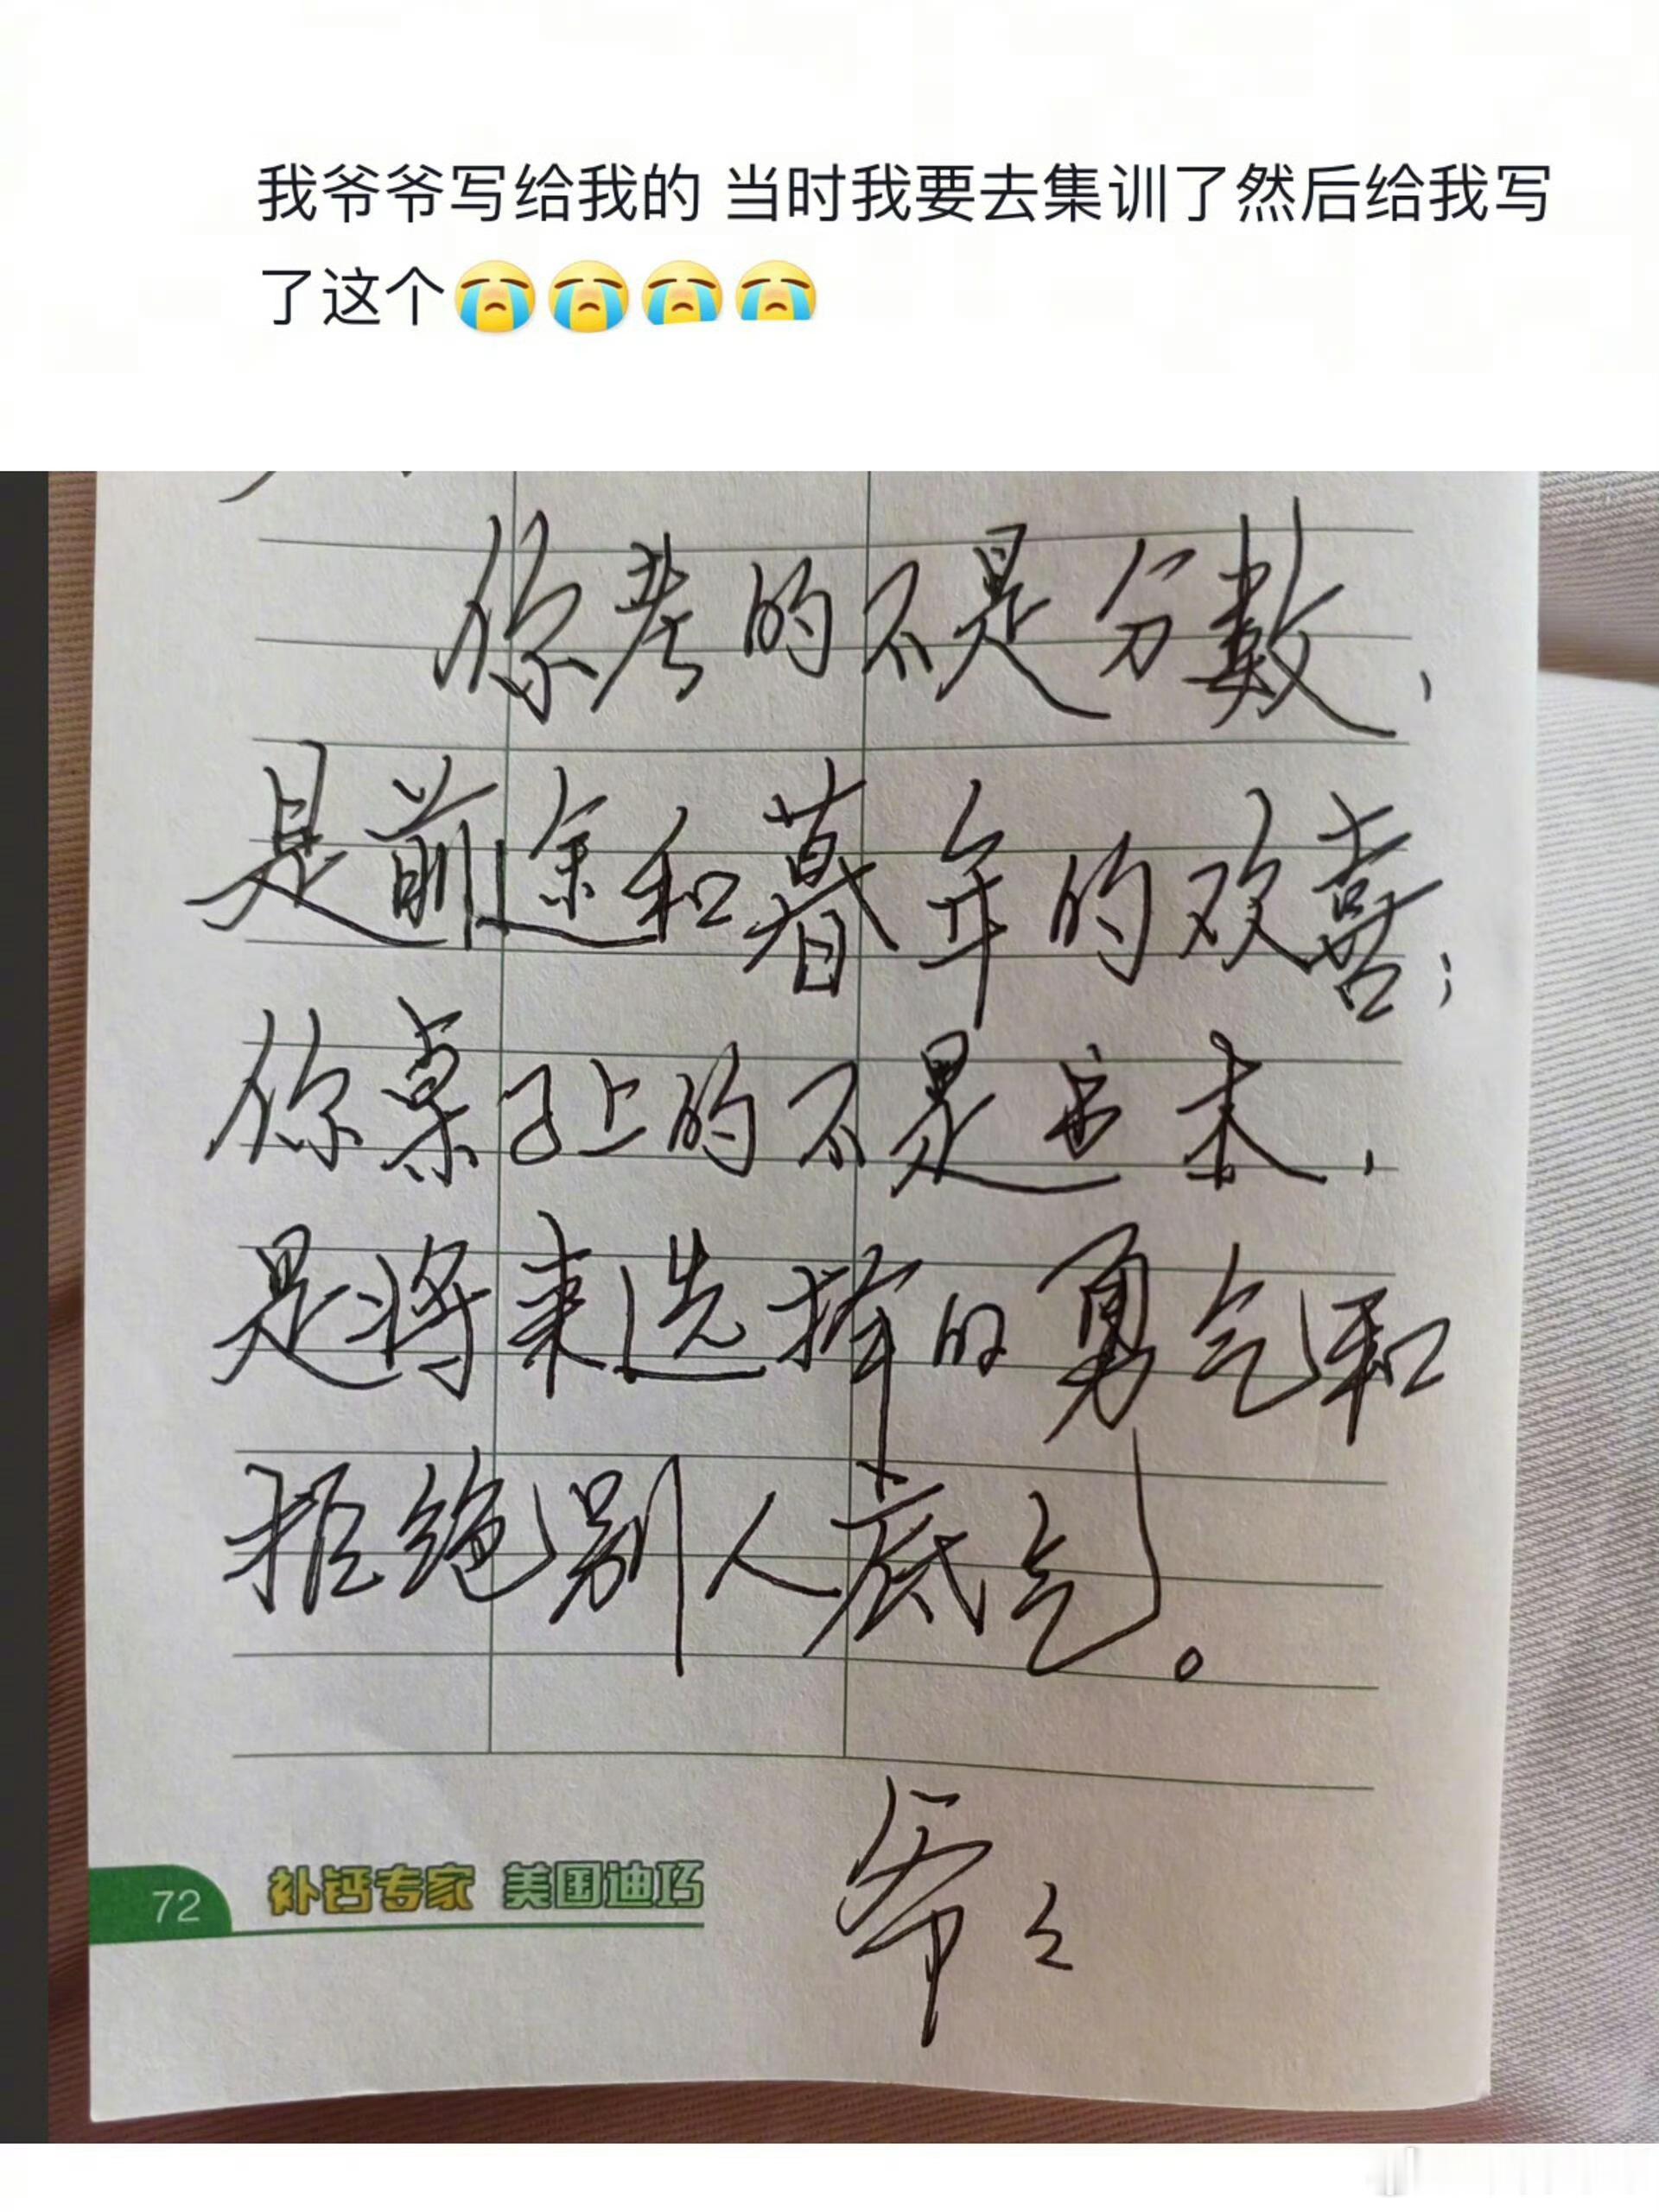 我爷爷写给我的 当时我要去集训了然后给我写
了这个😭😭😭😭
你考的不是分数，
是前途和暮年的欢喜；
你桌子上的不是书本，
是将来选择的勇气和
拒绝别人底气。
爷々
72 补钙专家 美国迪巧